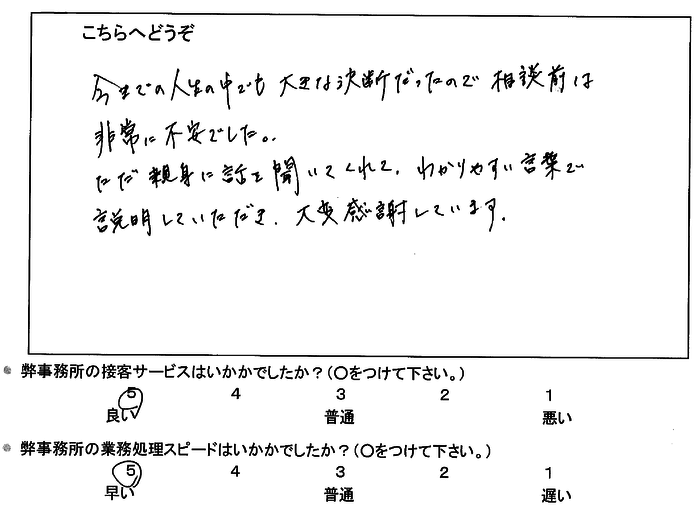 こちらへどうぞ
今までの人生の中でも大きな決断だったので相談前は
非常に不安でした。
ただ親身に話を聞いてくれて、わかりやすい言葉で
説明していただき、大変感謝しています。
弊事務所の接客サービスはいかかでしたか？(〇をつけて下さい。)
5 4 3 2 1
良い 普通 悪い
弊事務所の業務処理スピードはいかかでしたか？(〇をつけて下さい。)
5 4 3 2 1
早い 普通 遅い